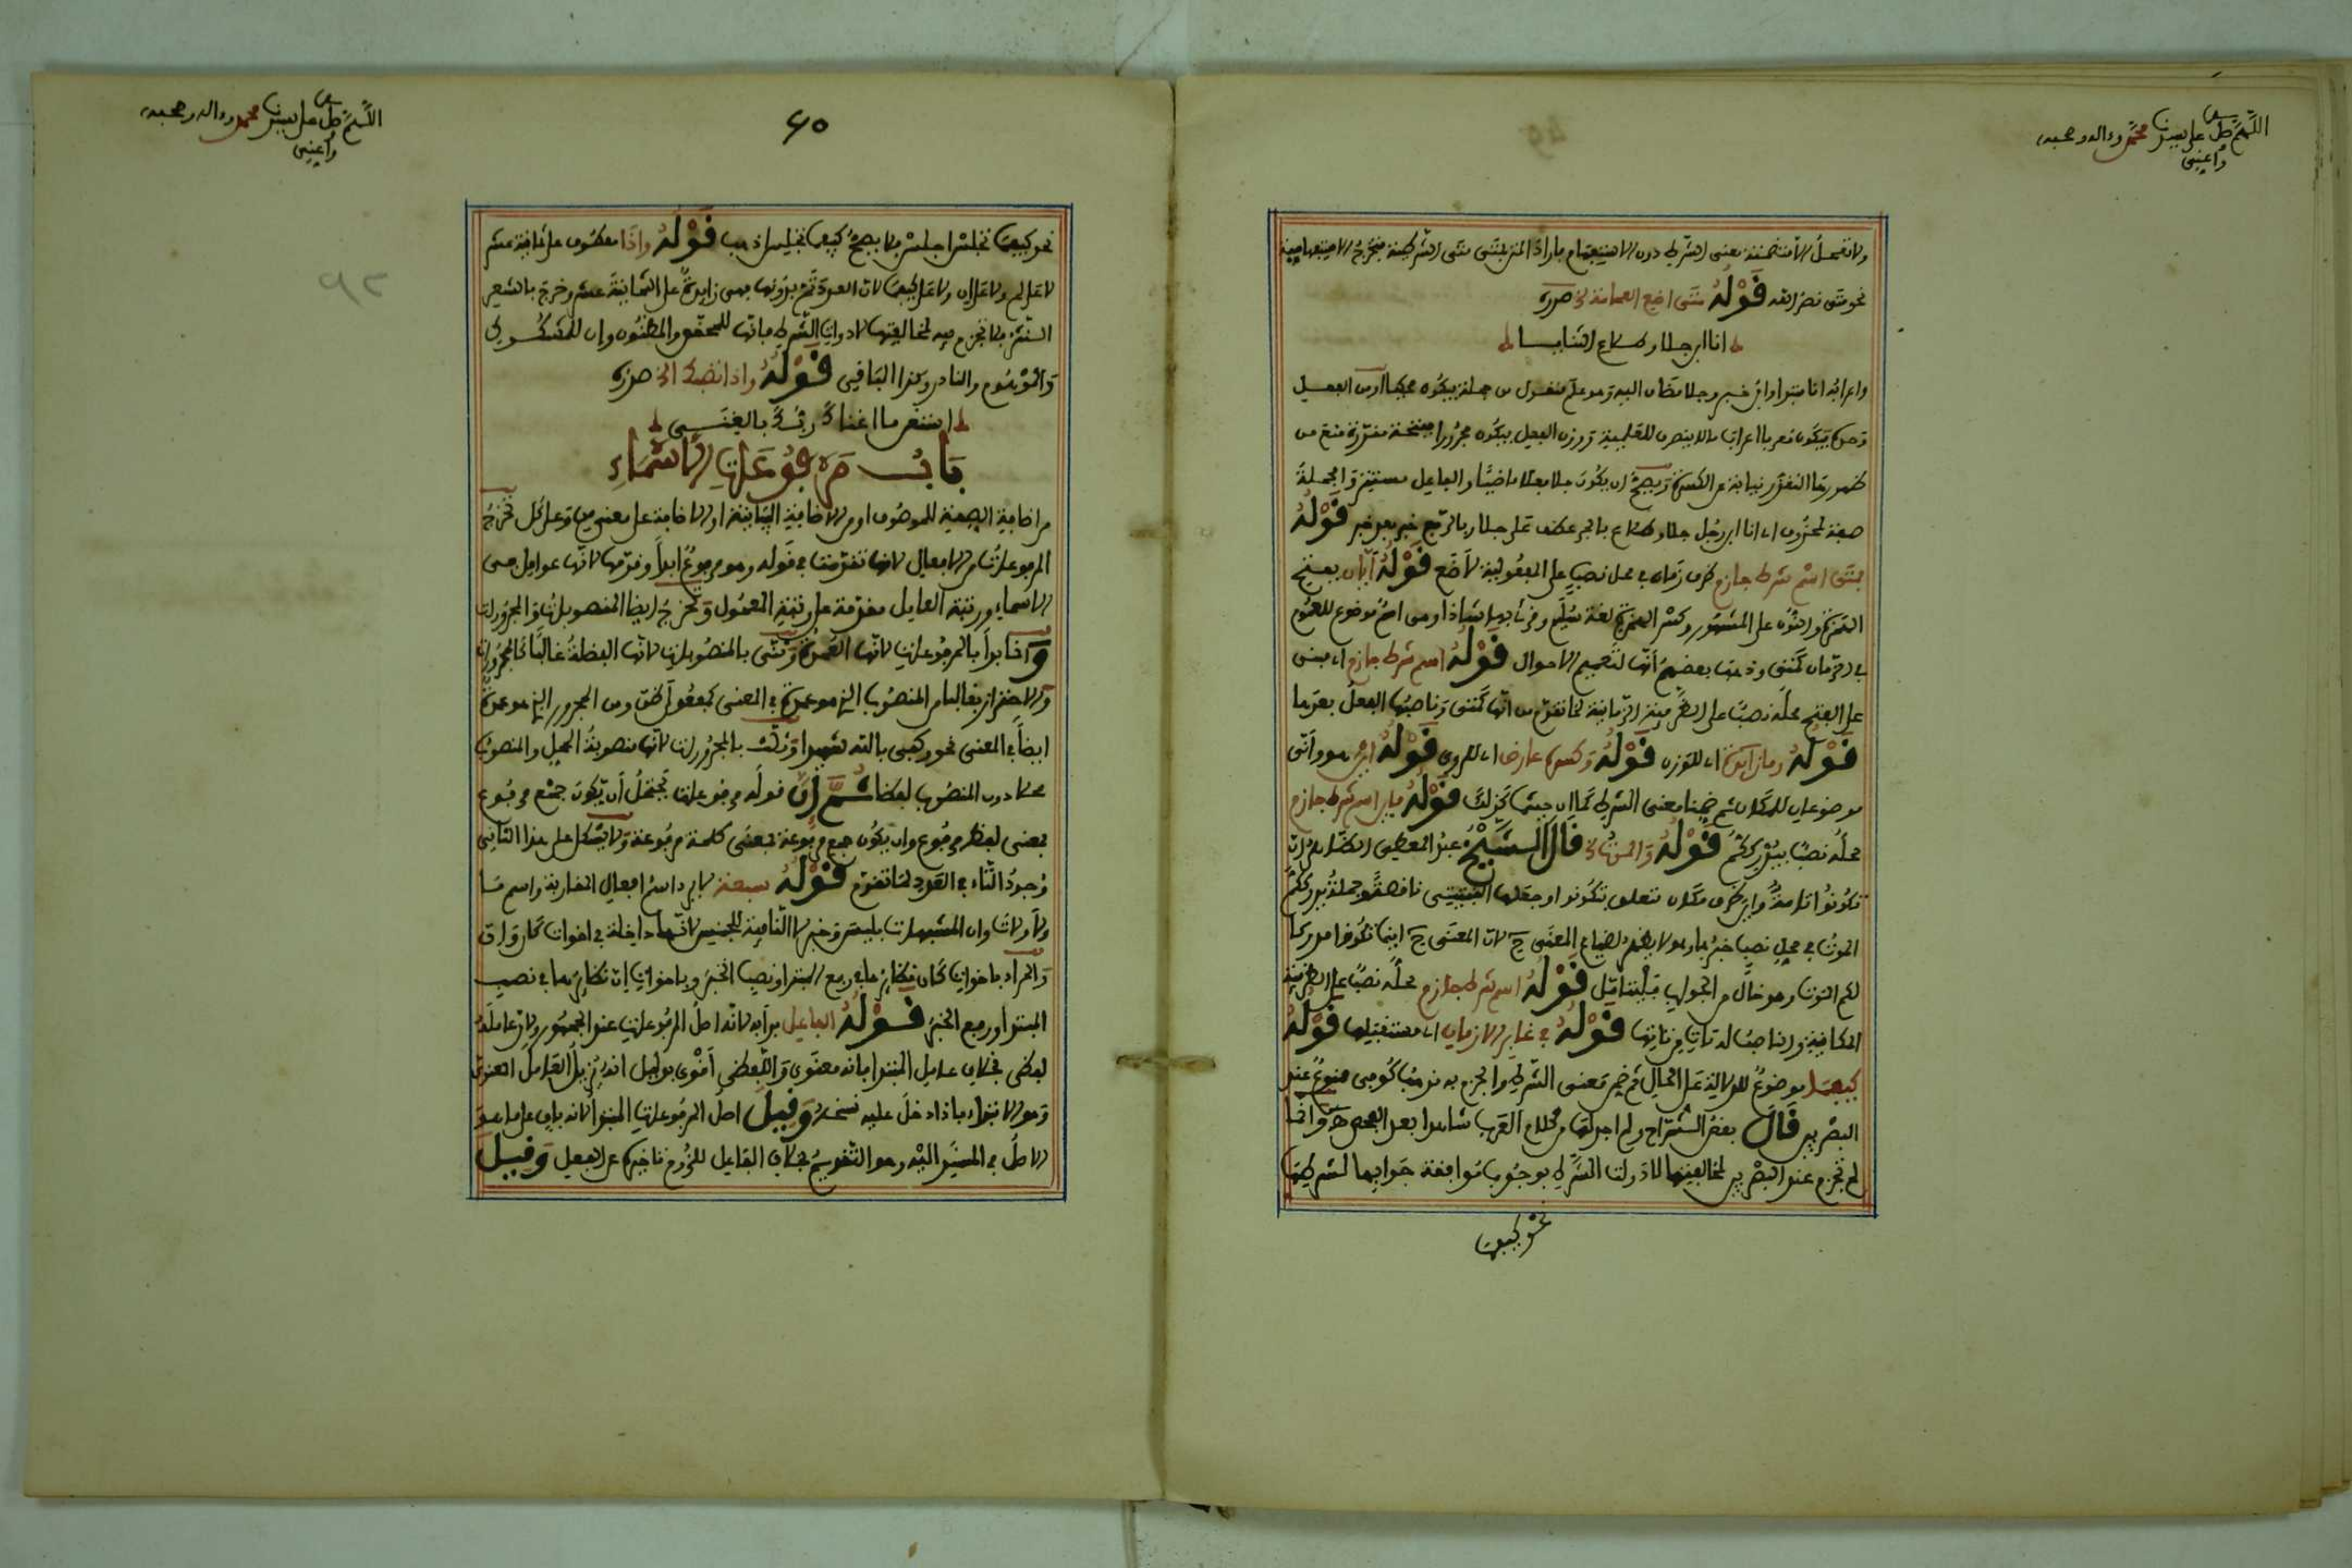 اللهم صل على سيدنا محمد وءاله وصحبه
وأعني
ولا تعمل إلا متضمنة معنى الشرط دون الاستفهام باراد المنز بمتى متى الشرطية فتخرج الاستفهامية
نحو متى نصر الله قوله متى اضع العمامة الخ صدره
انا ابن جلا وطلاع الثنايا
واعرابه انا مبتدأ وابن خبر وجلا مضاف اليه وهو علم منقول من جملة فيكون محكيا او من الفعل
وحده فيكون معربا اعراب ما لا ينصرف للعلمية ووزن الفعل فيكون مجرورا بفتحة مقدرة منع من
ظهورها التعذر نيابة عن الكسرة ويصح ان يكون جلا فعلا ماضيا والفاعل مستتر والجملة
صفة لمحذوف اي انا ابن رجل جلا وطلاع بالجر عطف على جلا وبالرفع خبر بعد خبر قوله
فمتى اسم شرط جازم ظرف زمان في محل نصب على المفعولية لأضع قوله أيان بفتح
الهمزة والنون على المشهور وكسر الهمزة لغة سليم وقرئ بها شاذا وهي اسم موضوع للعموم
في الازمان كمتى وذهب بعضهم انها لتعميم الاحوال قوله اسم شرط جازم اي مبني
على الفتح محله نصب على الظرفية الزمانية لما تقدم من انها كمتى وناصبها الفعل بعدها
قوله وما زائدة اي للوزن قوله وكسره عارض اي للروي قوله اين هو وأنى
موضوعان للمكان ثم ضمنا معنى الشرط كما ان حيثما كذلك قوله فاين اسم شرط جازم
محله نصب بيدرككم قوله والموت الخ قال الشيخ عبد المعطي
تكونوا تامة واين ظرف مكان متعلق بتكونوا او جعلها ناقصة وجملة يدرككم
الموت في محل نصب خبر لها وهو لا يظهر لضياع المعنى ح لان المعنى ح اينما تكونوا مدركا
لكم الموت وهو خال من الجواب فليتأمل قوله اسم شرط جازم محله نصب على الظرفية
المكانية والناصب له تأت من تأتها قوله في غابر الازمان اي مستقبلها قوله
كيفما موضوع للدلالة على الحال ثم ضمن معنى الشرط والجزم به مذهب كوفي ممنوع عند
البصريين قال بعض الشراح ولم اجد لها من كلام العرب شاهدا بعد الفحص وانما
لم تجزم عند البصريين لمخالفتها لادوات الشرط بوجوب موافقة جوابها لشرطها
نحو كيفما
اللهم صل على سيدنا محمد وءاله وصحبه
وأعني
نحو كيفما تجلس اجلس فلا يصح كيفما تجلس اذهب قوله واذا معطوف على ثمانية عشر
لا على لم ولا على ان ولا على كيفما لان العدة تم بدونها فهي زائدة على الثمانية عشر وخرج بالشعر
النثر فلا تجزم فيه لمخالفتها لادوات الشرط فانها للمحقق والمظنون وان للمشكوك
والموهوم والنادر وكذا الباقي قوله واذا تصبك الخ صدره
استغن ما اغناك ربك بالغنى
باب مرفوعات الأسماء
من اضافة الصفة للموصوف او من الاضافة البيانية او الاضافة على معنى من وعلى كل تخرج
المرفوعات من الافعال لانها تقدمت في قوله وهو مرفوع ابدا وقدمها لانها عوامل في
الاسماء ورتبة العامل مقدمة على رتبة المعمول وتخرج ايضا المنصوبات والمجرورات
وانما بدأ بالمرفوعات لانها العمدة وثنى بالمنصوبات لانها الفضلة غالبا كالمجرورات
والاحتراز بغالبا من المنصوب الذي هو عمدة في المعنى كمفعول ظن ومن المجرور الذي هو عمدة
ايضا في المعنى نحو وكفى بالله شهيدا وثلث بالمجرورات لانها منصوبة المحل والمنصوب
محلا دون المنصوب لفظا ثم إن قوله مرفوعات يحتمل أن يكون جمع مرفوع
بمعنى لفظ مرفوع وان يكون جمع مرفوعة بمعنى كلمة مرفوعة ولا يشكل على هذا الثاني
وجود التاء في العدد لما تقدم قوله سبعة لا يرد اسم افعال المقاربة واسم ما
ولا ولات وان المشبهات بليس وخبر لا النافية للجنس لانها داخلة في اخوات كان وان
والمراد باخوات كان نظائرها في رفع المبتدا ونصب الخبر وباخوات ان نظائرها في نصب
المبتدأ ورفع الخبر قوله الفاعل بدأ به لانه اصل المرفوعات عند الجمهور ولان عامله
لفظي بخلاف عامل المبتدا فانه معنوي واللفظي أقوى بدليل انه يزيل العامل المعنوي
وهو الابتداء فاذا دخل عليه نسخه وقيل اصل المرفوعات المبتدأ لانه باق على ما هو
الاصل في المسند اليه وهو التقديم بخلاف الفاعل للزوم تاخيره عن الفعل وقيل